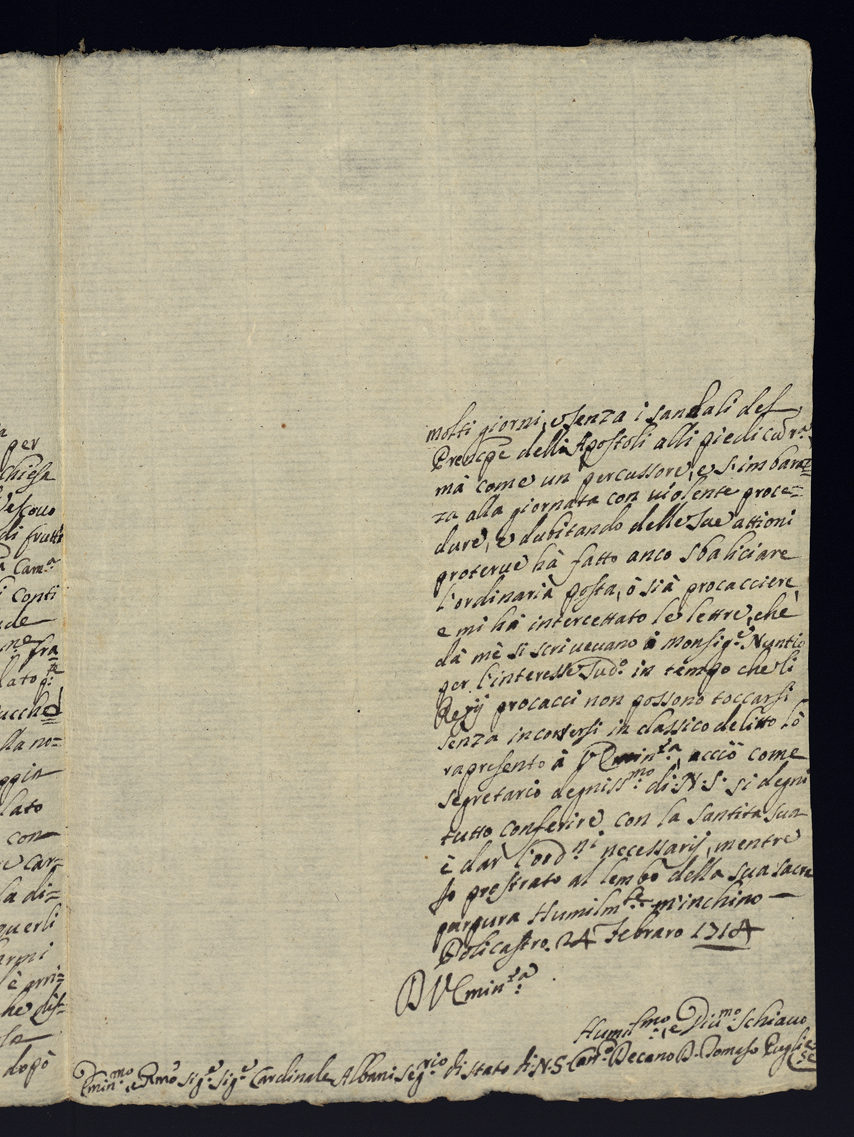 per
Chiesa
Vescouo
di frutti
Cam.ª
i conti
fra
lla no=
lato
con
e car=
la di=
querli
armi
dopò
molti giorni, e senza i sandali del
Prencipe delli Apostoli alli piedi
mà come un percussore, e s'imbaraz=
za alla giornata con uiolente proce=
dure, e dubitando delle sue attioni
proterue hà fatto anco sbaliciare
l'ordinaria posta, ò sià procacciere
e mi hà intercettato le lettre, che
dà mè si scriueuano à Monsig.re Nuntio
per l'interesse sud.º in tempo che li
Regij procacci non possono toccarsi
senza incorrersi in classico delitto lò
rapresento à V Emin.za, acciò come
segretario degniss.mo di N. S. si degni
tutto conferire con la Santità sua
è dar l'ord.ni necessarij, mentre
io prostrato al lembo della sua sacra
purpura Humilm.te m'inchino
Policastro. 24 Febraro 1714
D V Emin.za
Humil.mo, e Diu.mo Schiauo
Emin.mo e Rmo Sig.re Sig.re Cardinale Albani Seg.rio di Stato di N. S. Can.co Decano D. Tomaso Pugliese